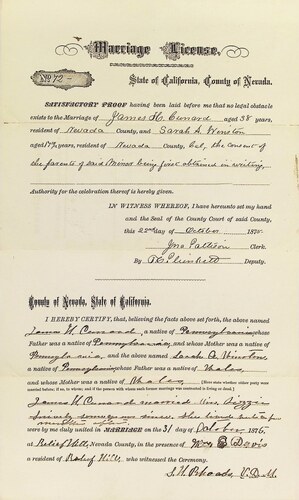 Marriage License.
No. 72
State of California, County of Nevada.
SATISFACTORY PROOF having been laid before me that no legal obstacle
exists to the Marriage of James H. Cunard aged 38 years,
resident of Nevada County, and Sarah A. Winston
aged 17½ years, resident of Nevada County, Cal, the consent of
the parents of said Minor being first obtained in writing,
Authority for the celebration thereof is hereby given.
IN WITNESS WHEREOF, I have hereunto set my hand
and the Seal of the County Court of said County,
this 22nd day of October 1875
Jno Pattison Clerk.
By Deputy.
County of Nevada, State of California.
I HEREBY CERTIFY, that, believing the facts above set forth, the above named
James H. Cunard, a native of Pennsylvania, whose
Father was a native of Pennsylvania, and whose Mother was a native of
Pennsylvania, and the above named Sarah A. Winston,
a native of Pennsylvania whose Father was a native of Wales,
and whose Mother was a native of Wales
James H. Cunard married Miss Lizzie
years since. She
were by me duly united in MARRIAGE on the 31 October, 1875,
at Relief Hill, Nevada County, in the presence of Davis
a resident of Relief Hill, who witnessed the Ceremony.
S. H. Rhoads